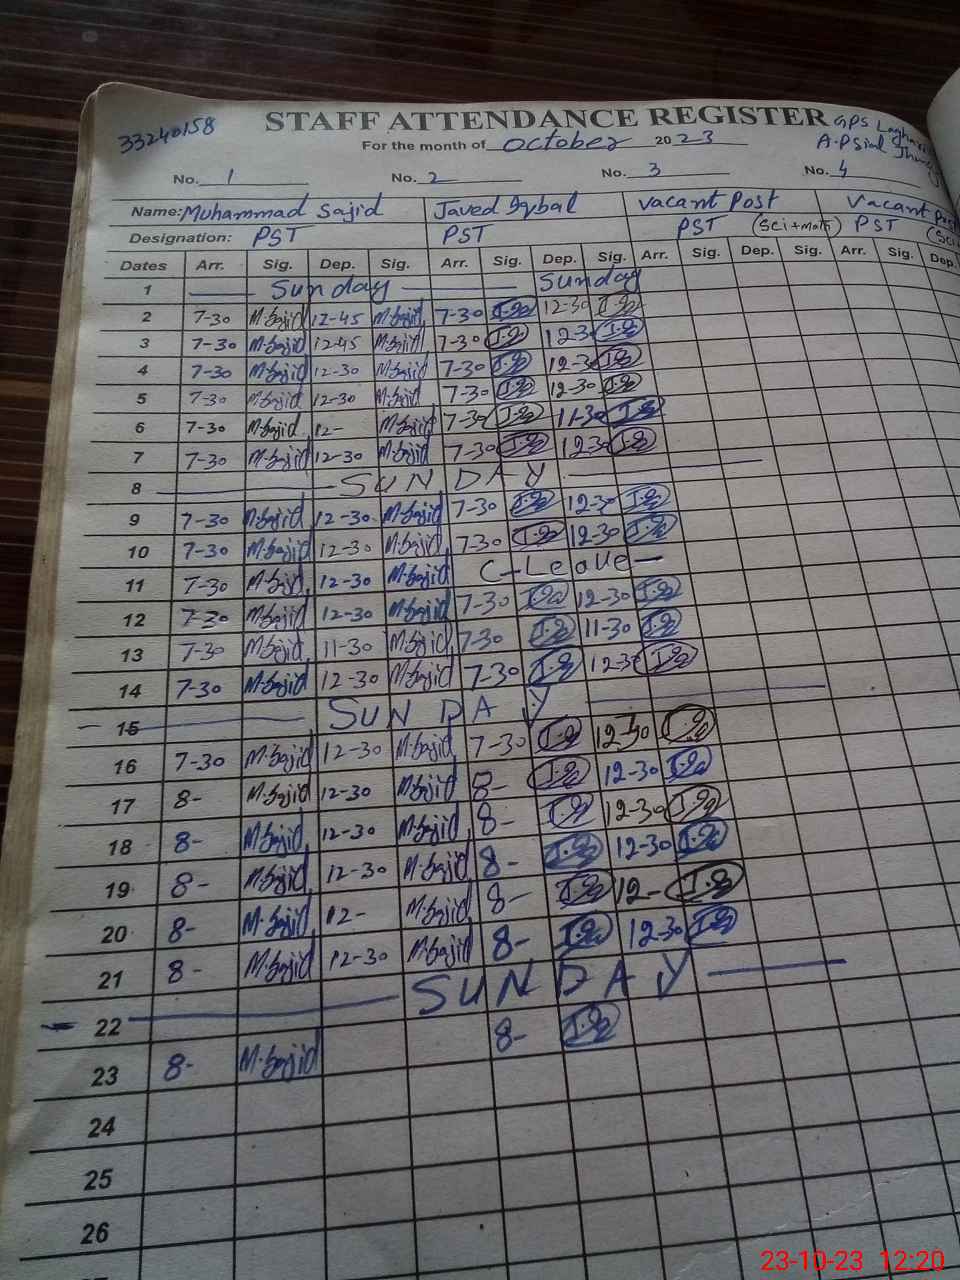 33240158
STAFF ATTENDANCE REGISTER GPS
For the month of October 2023 A.P Sial
No. 1 No. 2 No. 3 No. 4
Name: Muhammad Sajid Javed Iqbal Vacant Post Vacant Post
Designation: PST PST PST (Sci+Math) PST (Sci
Dates Arr. Sig. Dep. Sig. Arr. Sig. Dep. Sig. Arr. Sig. Dep. Sig. Arr. Sig. Dep.
1 Sunday Sunday
2 7-30 M.Sajid 12-45 M.Sajid 7-30 12-30
3 7-30 M.Sajid 12-45 M.Sajid 7-30 12-30
4 7-30 M.Sajid 12-30 M.Sajid 7-30 12-30
5 7-30 M.Sajid 12-30 M.Sajid 7-30 12-30
6 7-30 M.Sajid 12- M.Sajid 7-30 11-30
7 7-30 M.Sajid 12-30 M.Sajid 7-30 12-30
8 SUNDAY
9 7-30 M.Sajid 12-30 M.Sajid 7-30 12-30
10 7-30 M.Sajid 12-30 M.Sajid 7-30 12-30
11 7-30 M.Sajid 12-30 M.Sajid C-Leave
12 7-30 M.Sajid 12-30 M.Sajid 7-30 12-30
13 7-30 M.Sajid 11-30 M.Sajid 7-30 11-30
14 7-30 M.Sajid 12-30 M.Sajid 7-30 12-30
15 SUNDAY
16 7-30 M.Sajid 12-30 M.Sajid 7-30 12-30
17 8- M.Sajid 12-30 M.Sajid 8- 12-30
18 8- M.Sajid 12-30 M.Sajid 8- 12-30
19 8- M.Sajid 12-30 M.Sajid 8- 12-30
20 8- M.Sajid 12- M.Sajid 8- 12-
21 8- M.Sajid 12-30 M.Sajid 8- 12-30
22 SUNDAY
23 8- M.Sajid 8-
24
25
26
23-10-23 12:20